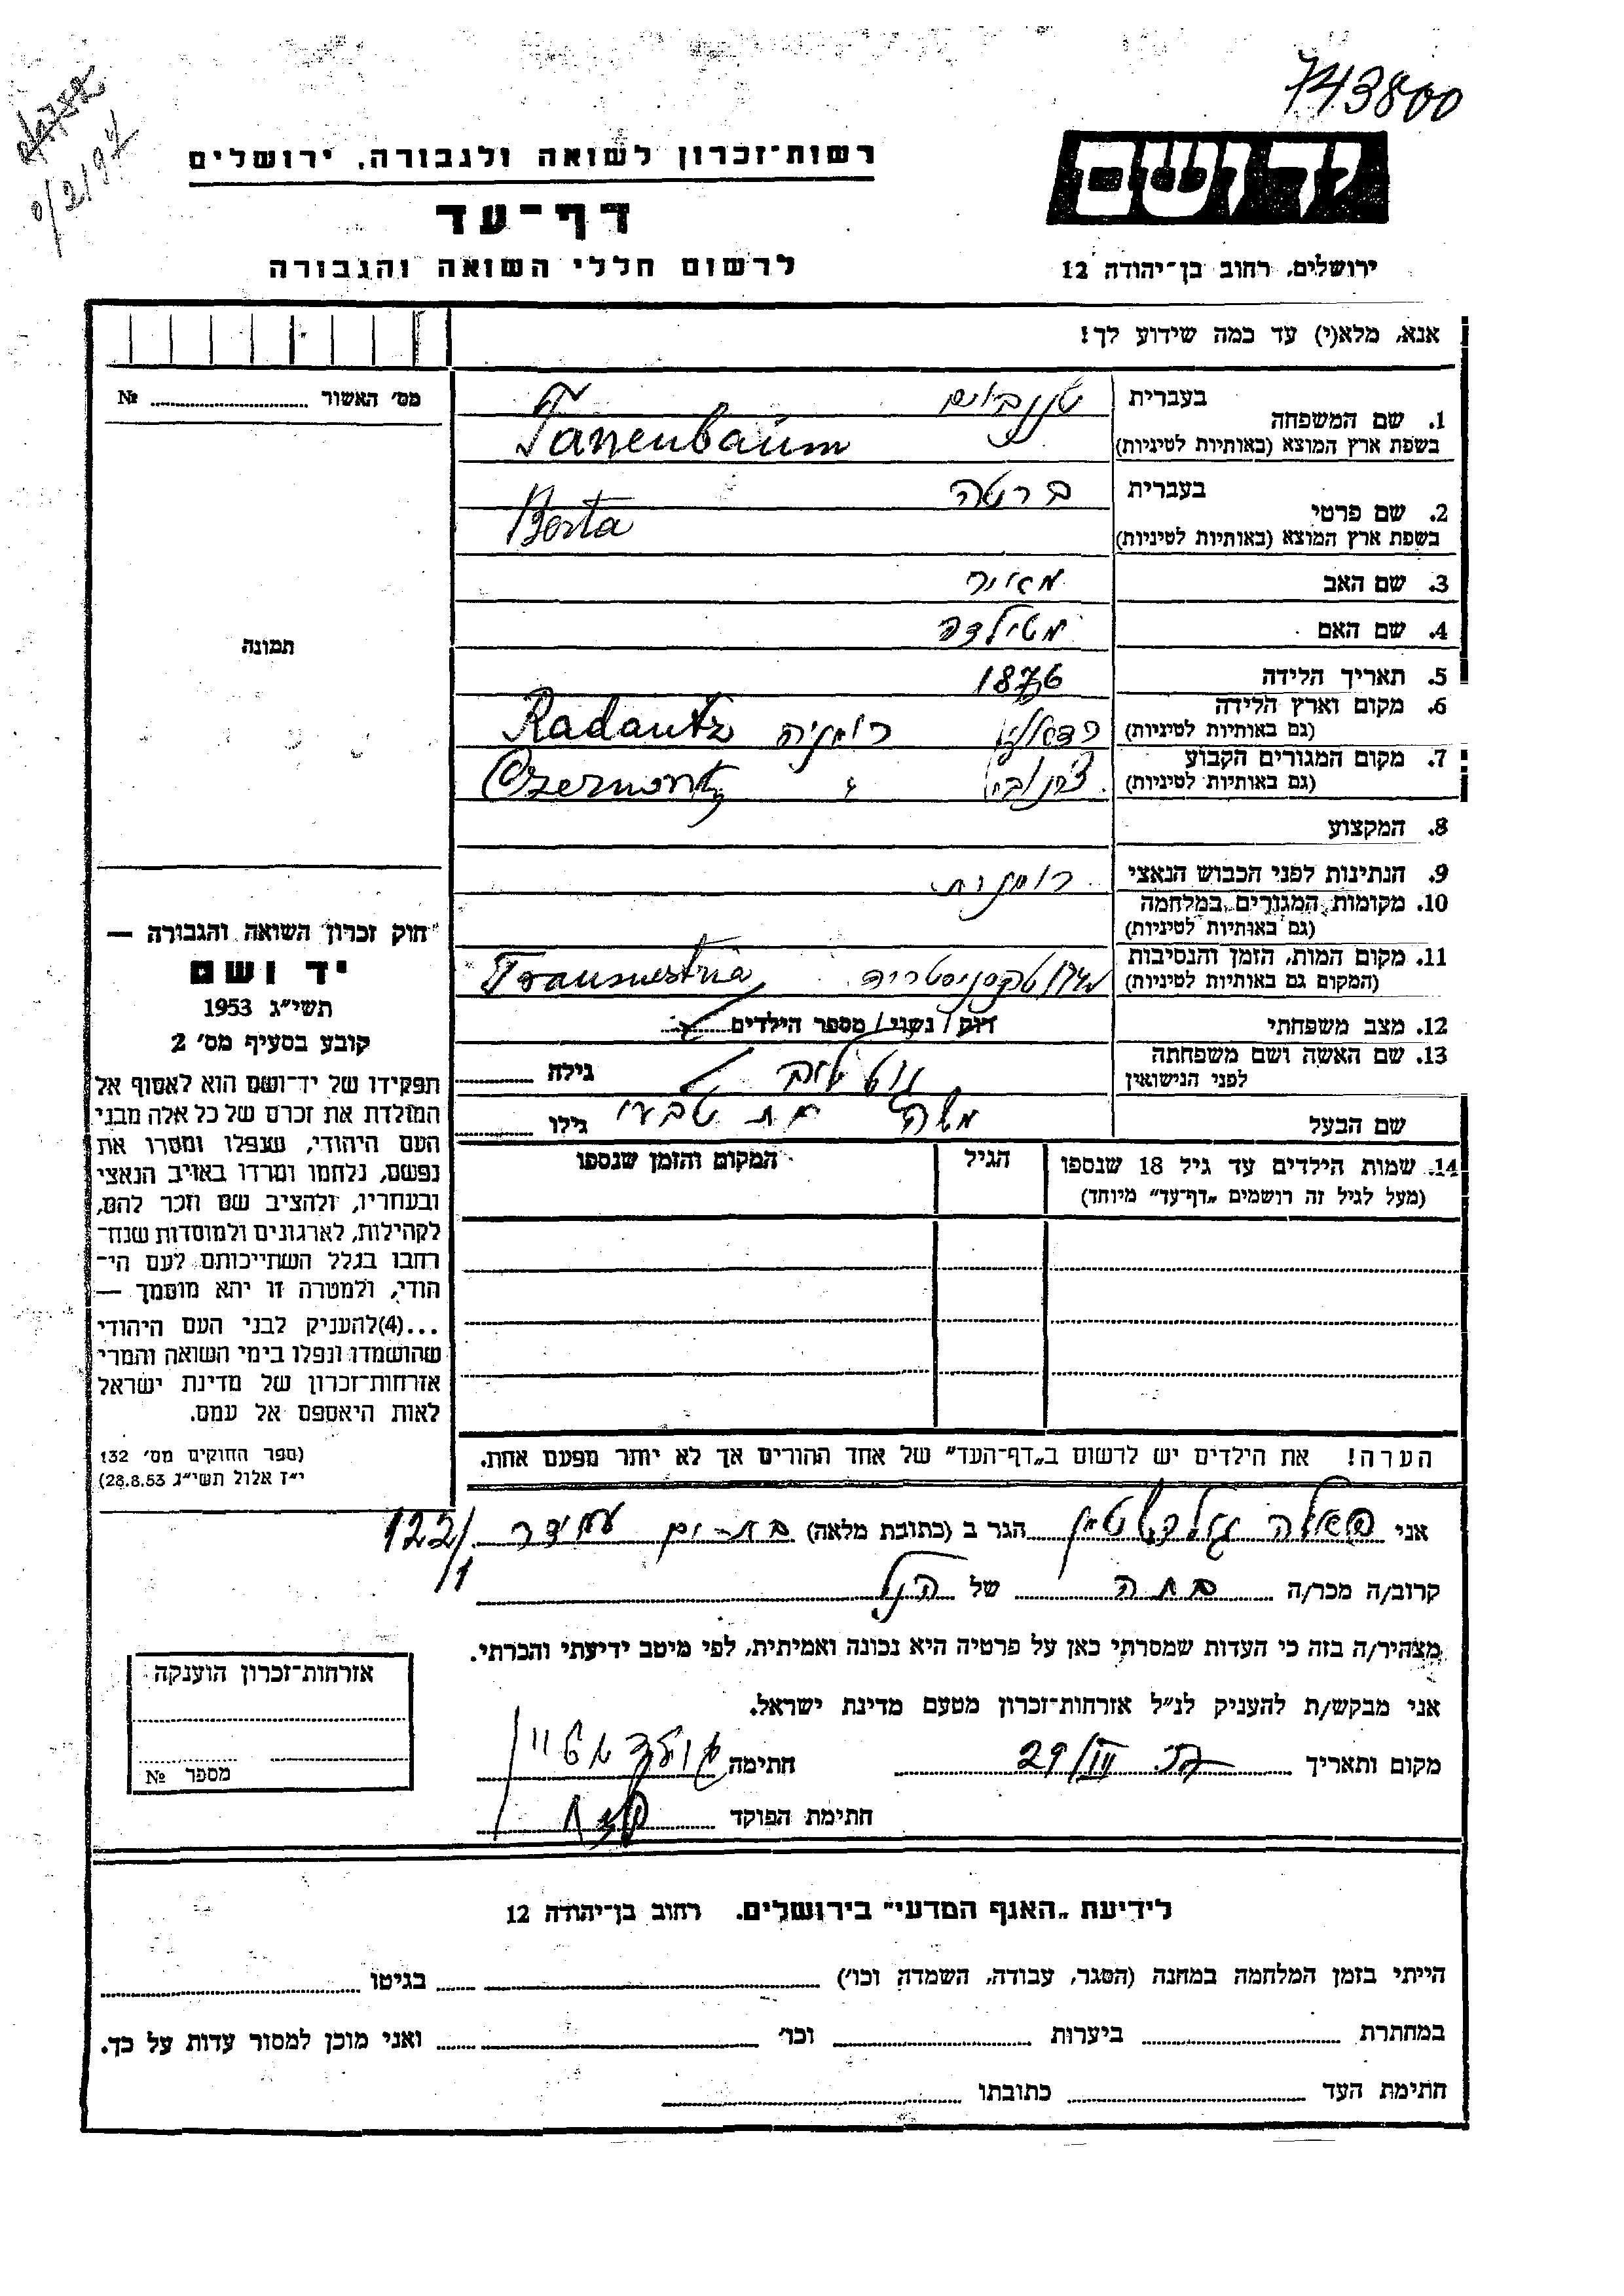 743800
יד ושם
רשות־זכרון לשואה ולגבורה, ירושלים
דף־עד
לרשום חללי השואה והגבורה
ירושלים, רחוב בן־יהודה 12
אנא, מלא(י) עד כמה שידוע לך!
מס׳ האשור № 
1. שם המשפחה בעברית טננבאום
בשפת ארץ המוצא (באותיות לטיניות) Tanenbaum
2. שם פרטי בעברית ברטה
בשפת ארץ המוצא (באותיות לטיניות) Berta
3. שם האב מאיר
4. שם האם מטילדה
תמונה
5. תאריך הלידה 1876
6. מקום וארץ הלידה (גם באותיות לטיניות) רדאוץ רומניה Radautz
7. מקום המגורים הקבוע (גם באותיות לטיניות) צ׳רנוביץ " Czernovitz
8. המקצוע
9. הנתינות לפני הכבוש הנאצי רומנית
10. מקומות המגורים במלחמה (גם באותיות לטיניות)
11. מקום המות, הזמן והנסיבות (המקום גם באותיות לטיניות) טרנסניסטריה Transnistria
12. מצב משפחתי רווק / נשוי / מספר הילדים
13. שם האשה ושם משפחתה לפני הנישואין גילה
שם הבעל מת טבעי גילו
14. שמות הילדים עד גיל 18 שנספו הגיל המקום והזמן שנספו
(מעל לגיל זה רושמים „דף־עד” מיוחד)
הערה! את הילדים יש לרשום ב„דף־העד” של אחד ההורים אך לא יותר מפעם אחת.
„חוק זכרון השואה והגבורה —
יד ושם
תשי״ג 1953
קובע בסעיף מס׳ 2
תפקידו של יד־ושם הוא לאסוף אל
המולדת את זכרם של כל אלה מבני
העם היהודי, שנפלו ומסרו את
נפשם, נלחמו ומרדו באויב הנאצי
ובעוזריו, ולהציב שם וזכר להם,
לקהילות, לארגונים ולמוסדות שנח־
רבו בגלל השתייכותם לעם הי־
הודי, ולמטרה זו יהא מוסמך —
...(4) להעניק לבני העם היהודי
שהושמדו ונפלו בימי השואה והמרי
אזרחות־זכרון של מדינת ישראל
לאות היאספם אל עמם.
(ספר החוקים מס׳ 132
י״ז אלול תשי״ג 28.8.53)
אני גולדשטיין הגר ב (כתובת מלאה) בת-ים 122/1
קרוב/ה מכר/ה בתה של הנ״ל
מצהיר/ה בזה כי העדות שמסרתי כאן על פרטיה היא נכונה ואמיתית, לפי מיטב ידיעתי והכרתי.
אני מבקש/ת להעניק לנ״ל אזרחות־זכרון מטעם מדינת ישראל.
מקום ותאריך 29/III חתימה גולדשטיין
חתימת הפוקד
אזרחות־זכרון הוענקה
מספר №
לידיעת „האגף המדעי” בירושלים. רחוב בן־יהודה 12
הייתי בזמן המלחמה במחנה (הסגר, עבודה, השמדה וכו׳) בגיטו
במחתרת ביערות וכו׳ ואני מוכן למסור עדות על כך.
חתימת העד כתובתו